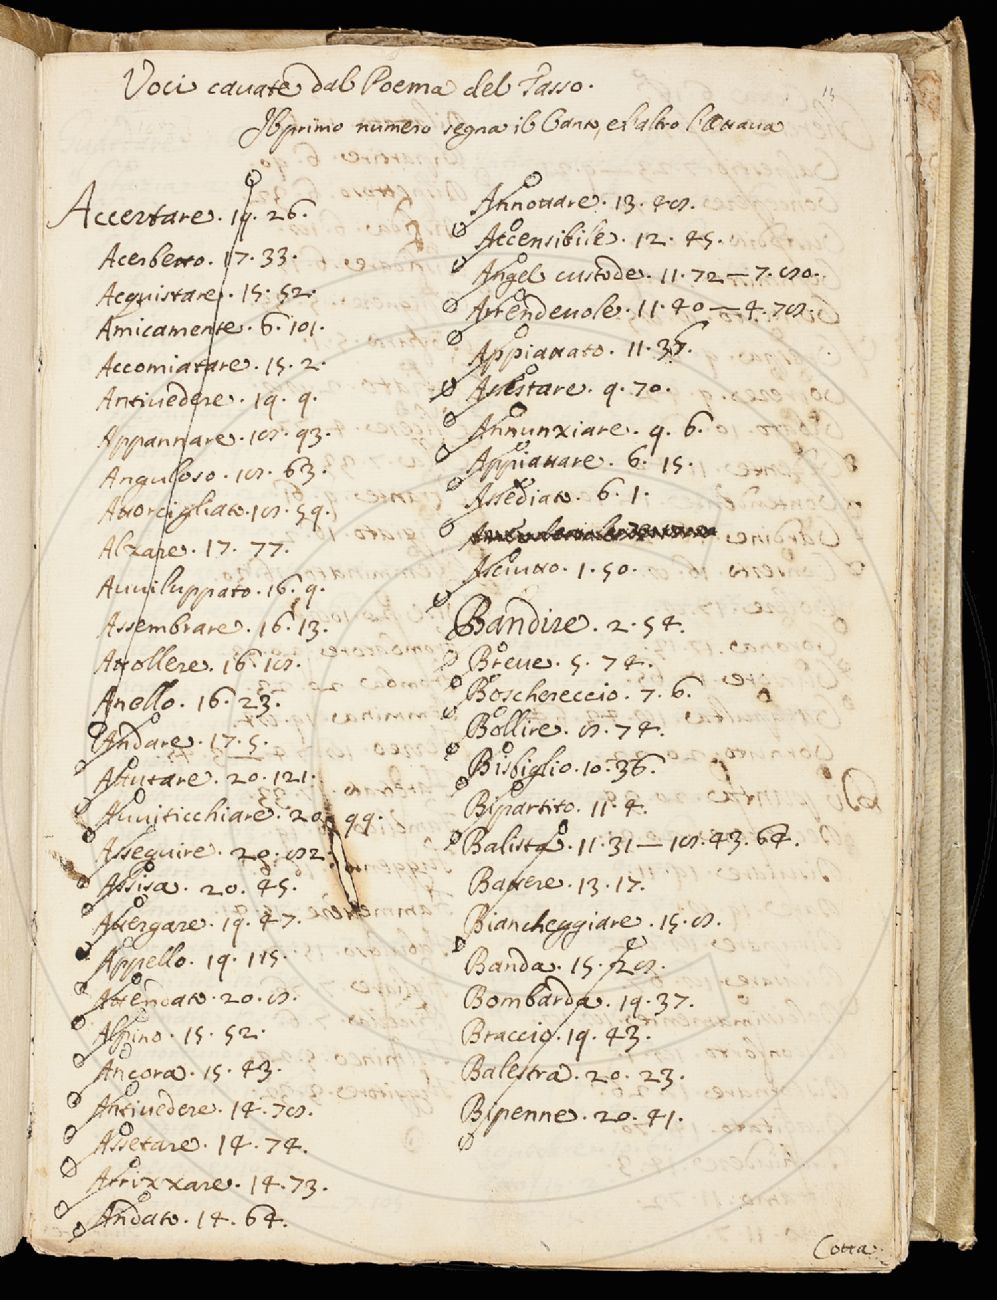 Voci cauate dal Poema del Tasso.
Il primo numero segna il Canto, e l'altro l'Ottaua
Accertare. 19. 26.
Acerbetto. 17. 33.
Acquistare. 15. 52.
Amicamente. 6. 101.
Accomiatare. 15. 2.
Antiuedere. 19. 9.
Appannare. 18. 93.
Anguloso. 18. 63.
Attorcigliato. 18. 59.
Alzare. 17. 77.
Auuiluppato. 16. 9.
Assembrare. 16. 13.
Attollere. 16. 18.
Anello. 16. 23.
Andare. 17. 5.
Aiutare. 20. 121.
Auuiticchiare. 20. 99.
Asseguire. 20. 82.
Assisa. 20. 45.
Attergare. 19. 47.
Appello. 19. 115.
Attendato. 20. 8.
Alpino. 15. 52.
Ancora. 15. 43.
Antiuedere. 14. 78.
Assetare. 14. 74.
Arrizzare. 14. 73.
Andato. 14. 64.
Annottare. 13. 48.
Accensibile. 12. 45.
Angel custode. 11. 72 — 7. 80.
Arrendeuole. 11. 40 — 4. 78.
Appiattato. 11. 36.
Assestare. 9. 70.
Annunziare. 9. 6.
Appiattare. 6. 15.
Assediato. 6. 1.
Asciutto. 1. 50.
Bandire. 2. 54.
Breue. 5. 74.
Boschereccio. 7. 6.
Bollire. 8. 74.
Bisbiglio. 10. 36.
Bipartito. 11. 4.
Balista. 11. 31 — 18. 43. 64.
Battere. 13. 17.
Biancheggiare. 15. 8.
Banda. 15. 28.
Bombarda. 19. 37.
Braccio. 19. 43.
Balestra. 20. 23.
Bipenne. 20. 41.
Cotta